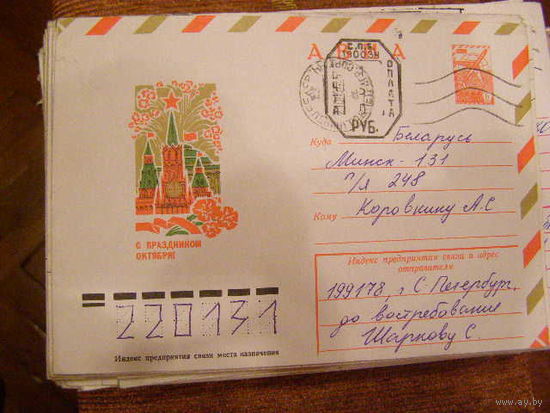 АВИА
ОПЛАТА
РУБ.
Куда Беларусь
Минск-131
п/я 248
Кому Коровкину А.С
С ПРАЗДНИКОМ
ОКТЯБРЯ!
Индекс предприятия связи и адрес
отправителя
199178, г С. Петербург,
до востребования
Шаркову С.
220131
Индекс предприятия связи места назначения
www.ay.by